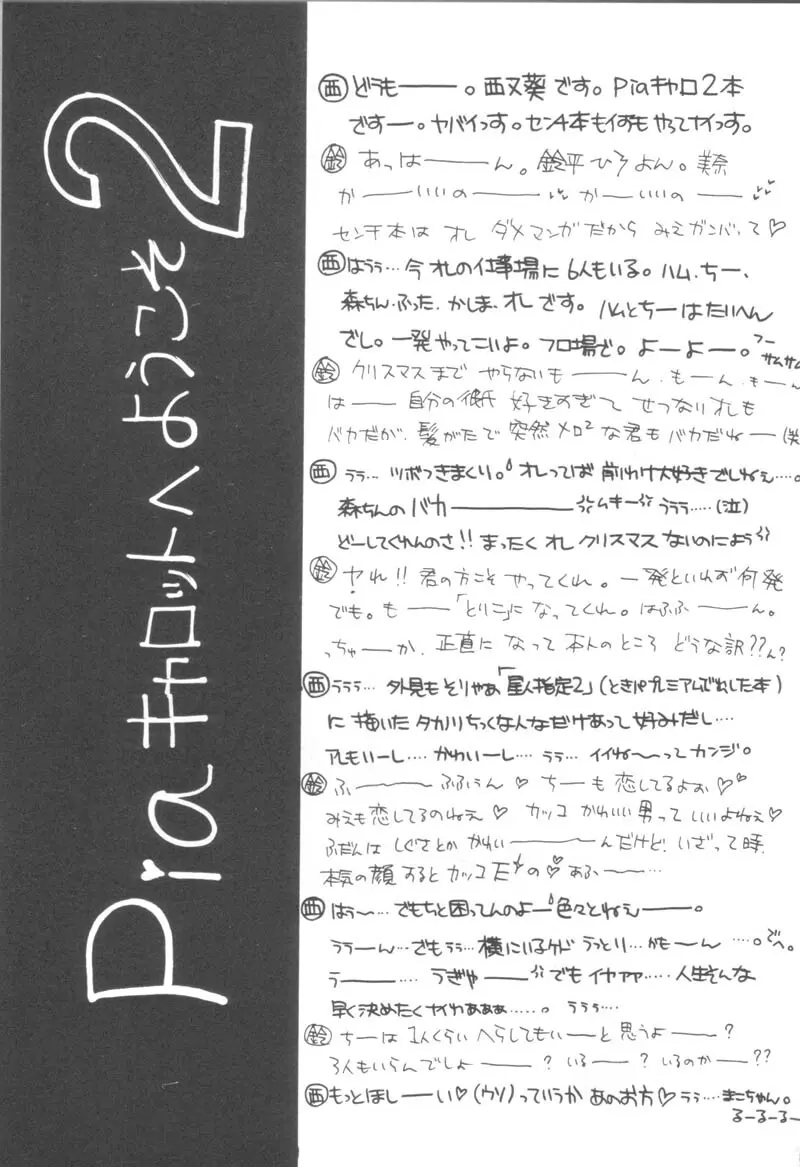 Piaキャロットへようこそ2
西 どうも――。西又葵です。Piaキャロ2本
です―。ヤバイっす。センチ本もイオもやってナイっす。
鈴 あっは――ん。鈴平ひろよん。美奈
か――いいの――か―いいの―
センチ本は オレ ダメマンガだから みえガンバって♡
西 はうぅ…今オレの仕事場に6人もいる。ハム、ちー、
森ちん、ふった、かしま、オレ です。ハムとちーはたいへん
だし。一発やってこいよ。フロ場で。よーよー。フーサムサム
鈴 クリスマスまで やらないも――ん、も―ん、も―ん
は―― 自分の彼氏 好きすぎて せつなりオレも
バカだが、髪がたで 突然メロ²な君もバカだね―(笑
西 うぅ…ツボつきまくり。オレってば 前わけ大好きでしねぇ…。
森ちんのバカ――――ムキーうぅぅ……(泣)
どーしてくれんのさ!! まったく オレ クリスマス ないのによう
鈴 ヤれ!! 君の方こそ やってくれ。一発といわず何発
でも。も――「とりこ」になってくれ。はふふ――ん。
っちゅ――か、正直に なって 本人のところ どうな訳??ん?
西 ううう…外見もそりゃあ「星人指定2」(ときパプレミアムでだした本)
に 描いた タカノリちっくな人なだけあって好みだし…
アレもいーし…かわいーし…うぅ…イイね〜ってカンジ。
鈴 ふ――ふふぅん♡ ちーも 恋してるよぉ♡
みえも恋してるのねぇ♡ カッコ かわいい男って いいよねぇ♡
ふだんは しぐさとか かわい――んだけど、いざって時、
本気の顔 するとカッコE の♡あふ――…
西 はぅ〜…でもちと困ってんのよ―色々とねぇ――。
ううーん…でもうぅ…横にいるケド うっとり…かも―ん …。どへ。
う――…うぎゃ――でもイヤァァ……人生そんな
早く決めたくナイわあぁぁ……。うぅぅ…
鈴 ちーは 1人くらい へらしてもい―と 思うよ――?
3人もいらんでしょ――? いる――? いるのか―??
西 もっとほし――い♡(ウソ)っていうか あのお方♡うぅ……まこちゃん。
るーるーるー